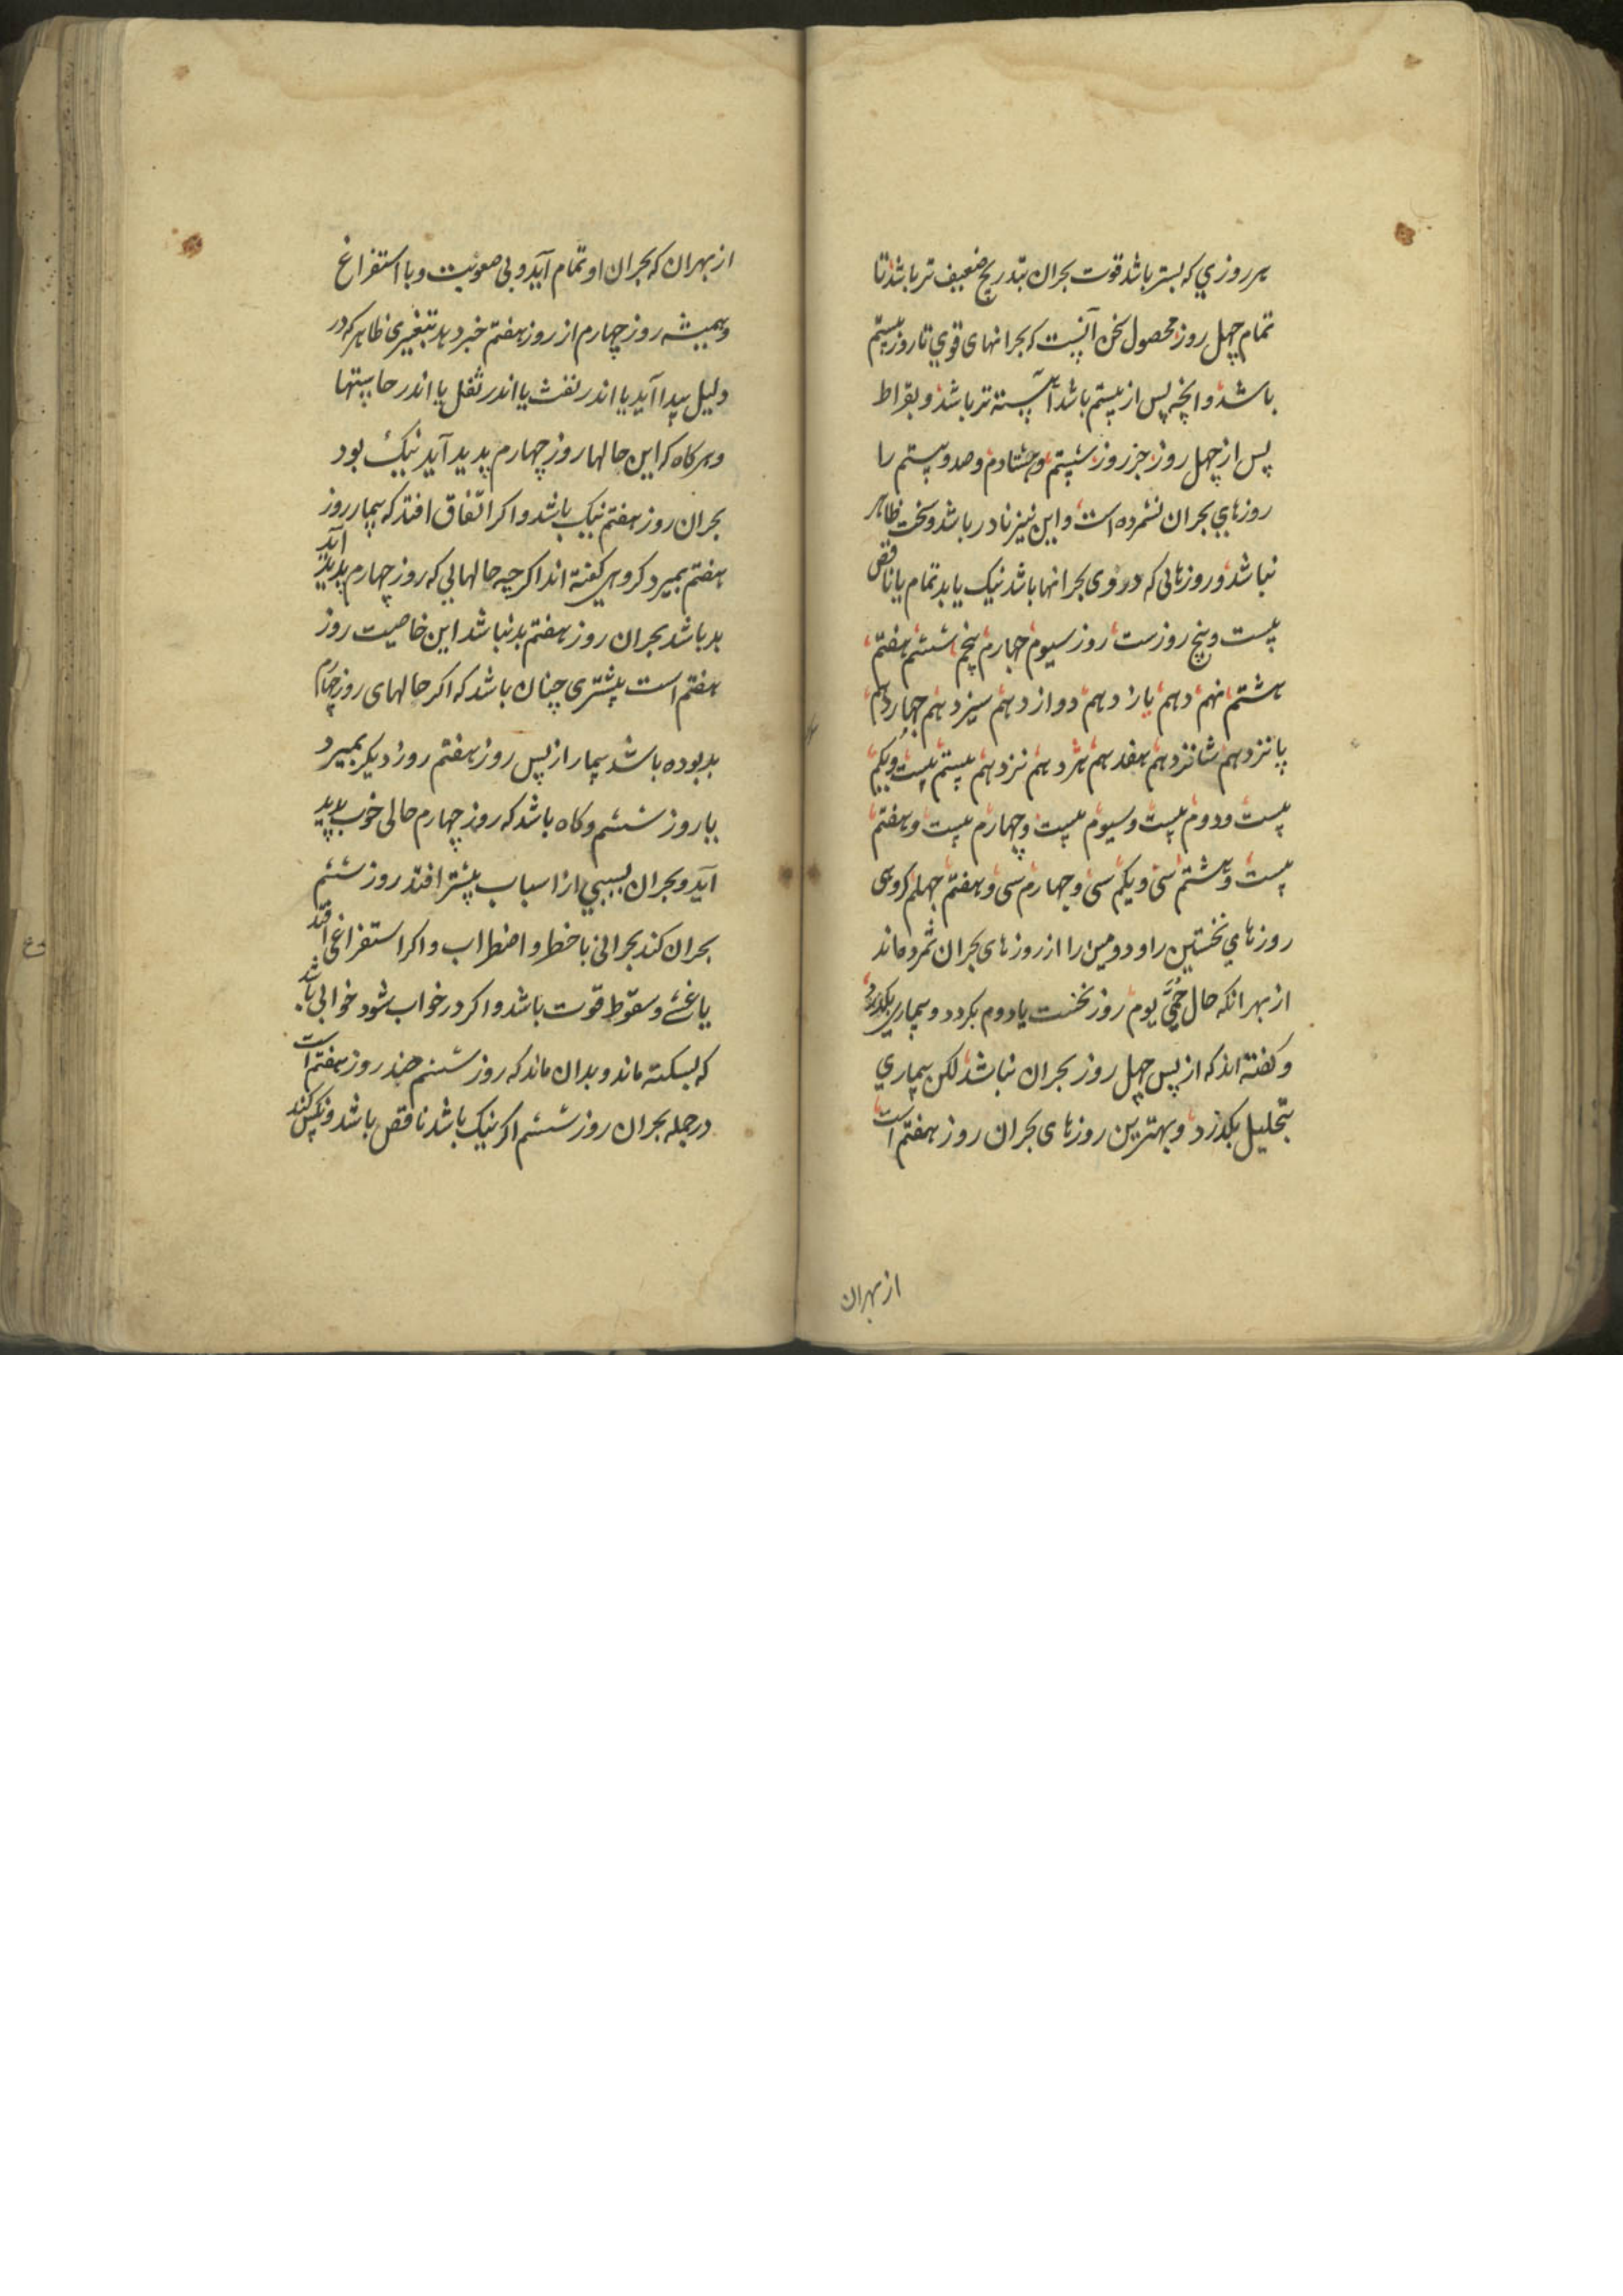 هر روزي که بستر باشد قوت بحران بتدریج ضعیف تر باشد تا
تمام چهل روز محصول سخن آنست که بحرانهای قوي تا روز بیستم
باشد وانچه پس از بیستم باشد آهسته تر باشد و بقراط
پس از چهل روز جز روز شیستم وهشتادم وصد وبیستم را
روزهاي بحران نشمرده است واین نیز نادر باشد وسخت ظاهر
نباشد وروزهائی که دروی بحرانها باشد نیک یا بد تمام یا ناقص
بیست وپنج روزست روز سیوم چهارم پنجم ششم هفتم
هشتم نهم دهم یازدهم دوازدهم سیزدهم چهاردهم
پانزدهم شانزدهم هفدهم هژدهم نزدهم بیستم بیست ویکم
بیست ودوم بیست وسیوم بیست وچهارم بیست وهفتم
بیست وهشتم سی ویکم سی وچهارم سی وهفتم چهلم کروهی
روزهاي نخستین را ودومین را از روزهای بحران شمرده اند
از بهر انکه حال حمی یوم روز نخست یا دوم بکردد وبیماري بکذرد
وکفته اند که از پس چهل روز بحران نباشد لکن بیماري
بتحلیل بکذرد وبهترین روزهای بحران روز هفتم است
از بهران
از بهران که بحران او تمام آید وبی صعوبت وبا استفراغ
وهمیشه روز چهارم از روز هفتم خبر دهد بتغییری ظاهر که در
دلیل پیدا آید یا اندر نفث یا اندر ثفل یا اندر حاستها
وهرکاه که این حالها روز چهارم پدید آید نیک بود
بحران روز هفتم نیک باشد واکر اتفاق افتد که بیمار روز
هفتم بمیرد کروهی کفته اند اکرچه حالهایی که روز چهارم پدید آید
بد باشد بحران روز هفتم بد نباشد این خاصیت روز
هفتم است بیشتری چنان باشد که اکر حالهای روز چهارم
بد بوده باشد بیمار از پس روز هفتم روز دیکر بمیرد
یا روز ششم وکاه باشد که روز چهارم حالی خوب پدید
آید وبحران بسببي از اسباب بیشتر افتد روز ششم
بحران کند بحرانی با خطر واضطراب واکر استفراغی افتد
یا غشی وسقوط قوت باشد واکر در خواب شود خوابی باشد
که بسکته ماند وبدان ماند که روز ششم ضد روز هفتم است
در جمله بحران روز ششم اکر نیک باشد ناقص باشد ونکس کند